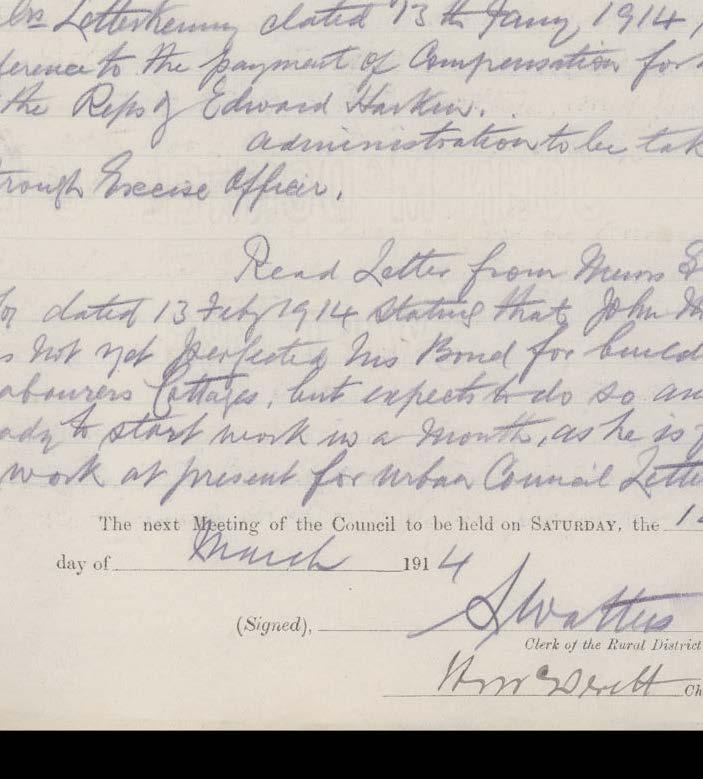 Letterkenny dated 13th Jany 1914,
ference to the payment of Compensation for
the Reps of Edward Harkin.
administration to be tak
rough Excise Officer.
Read Letter from Messrs
dated 13 Feby 1914 stating that John
s not yet perfected his Bond for build
abourers Cottages, but expects to do so an
ady to start work in a month, as he is
work at present for Urban Council Lette
The next Meeting of the Council to be held on SATURDAY, the 1
day of March 1914
(Signed), S Watters
Clerk of the Rural District
Ch